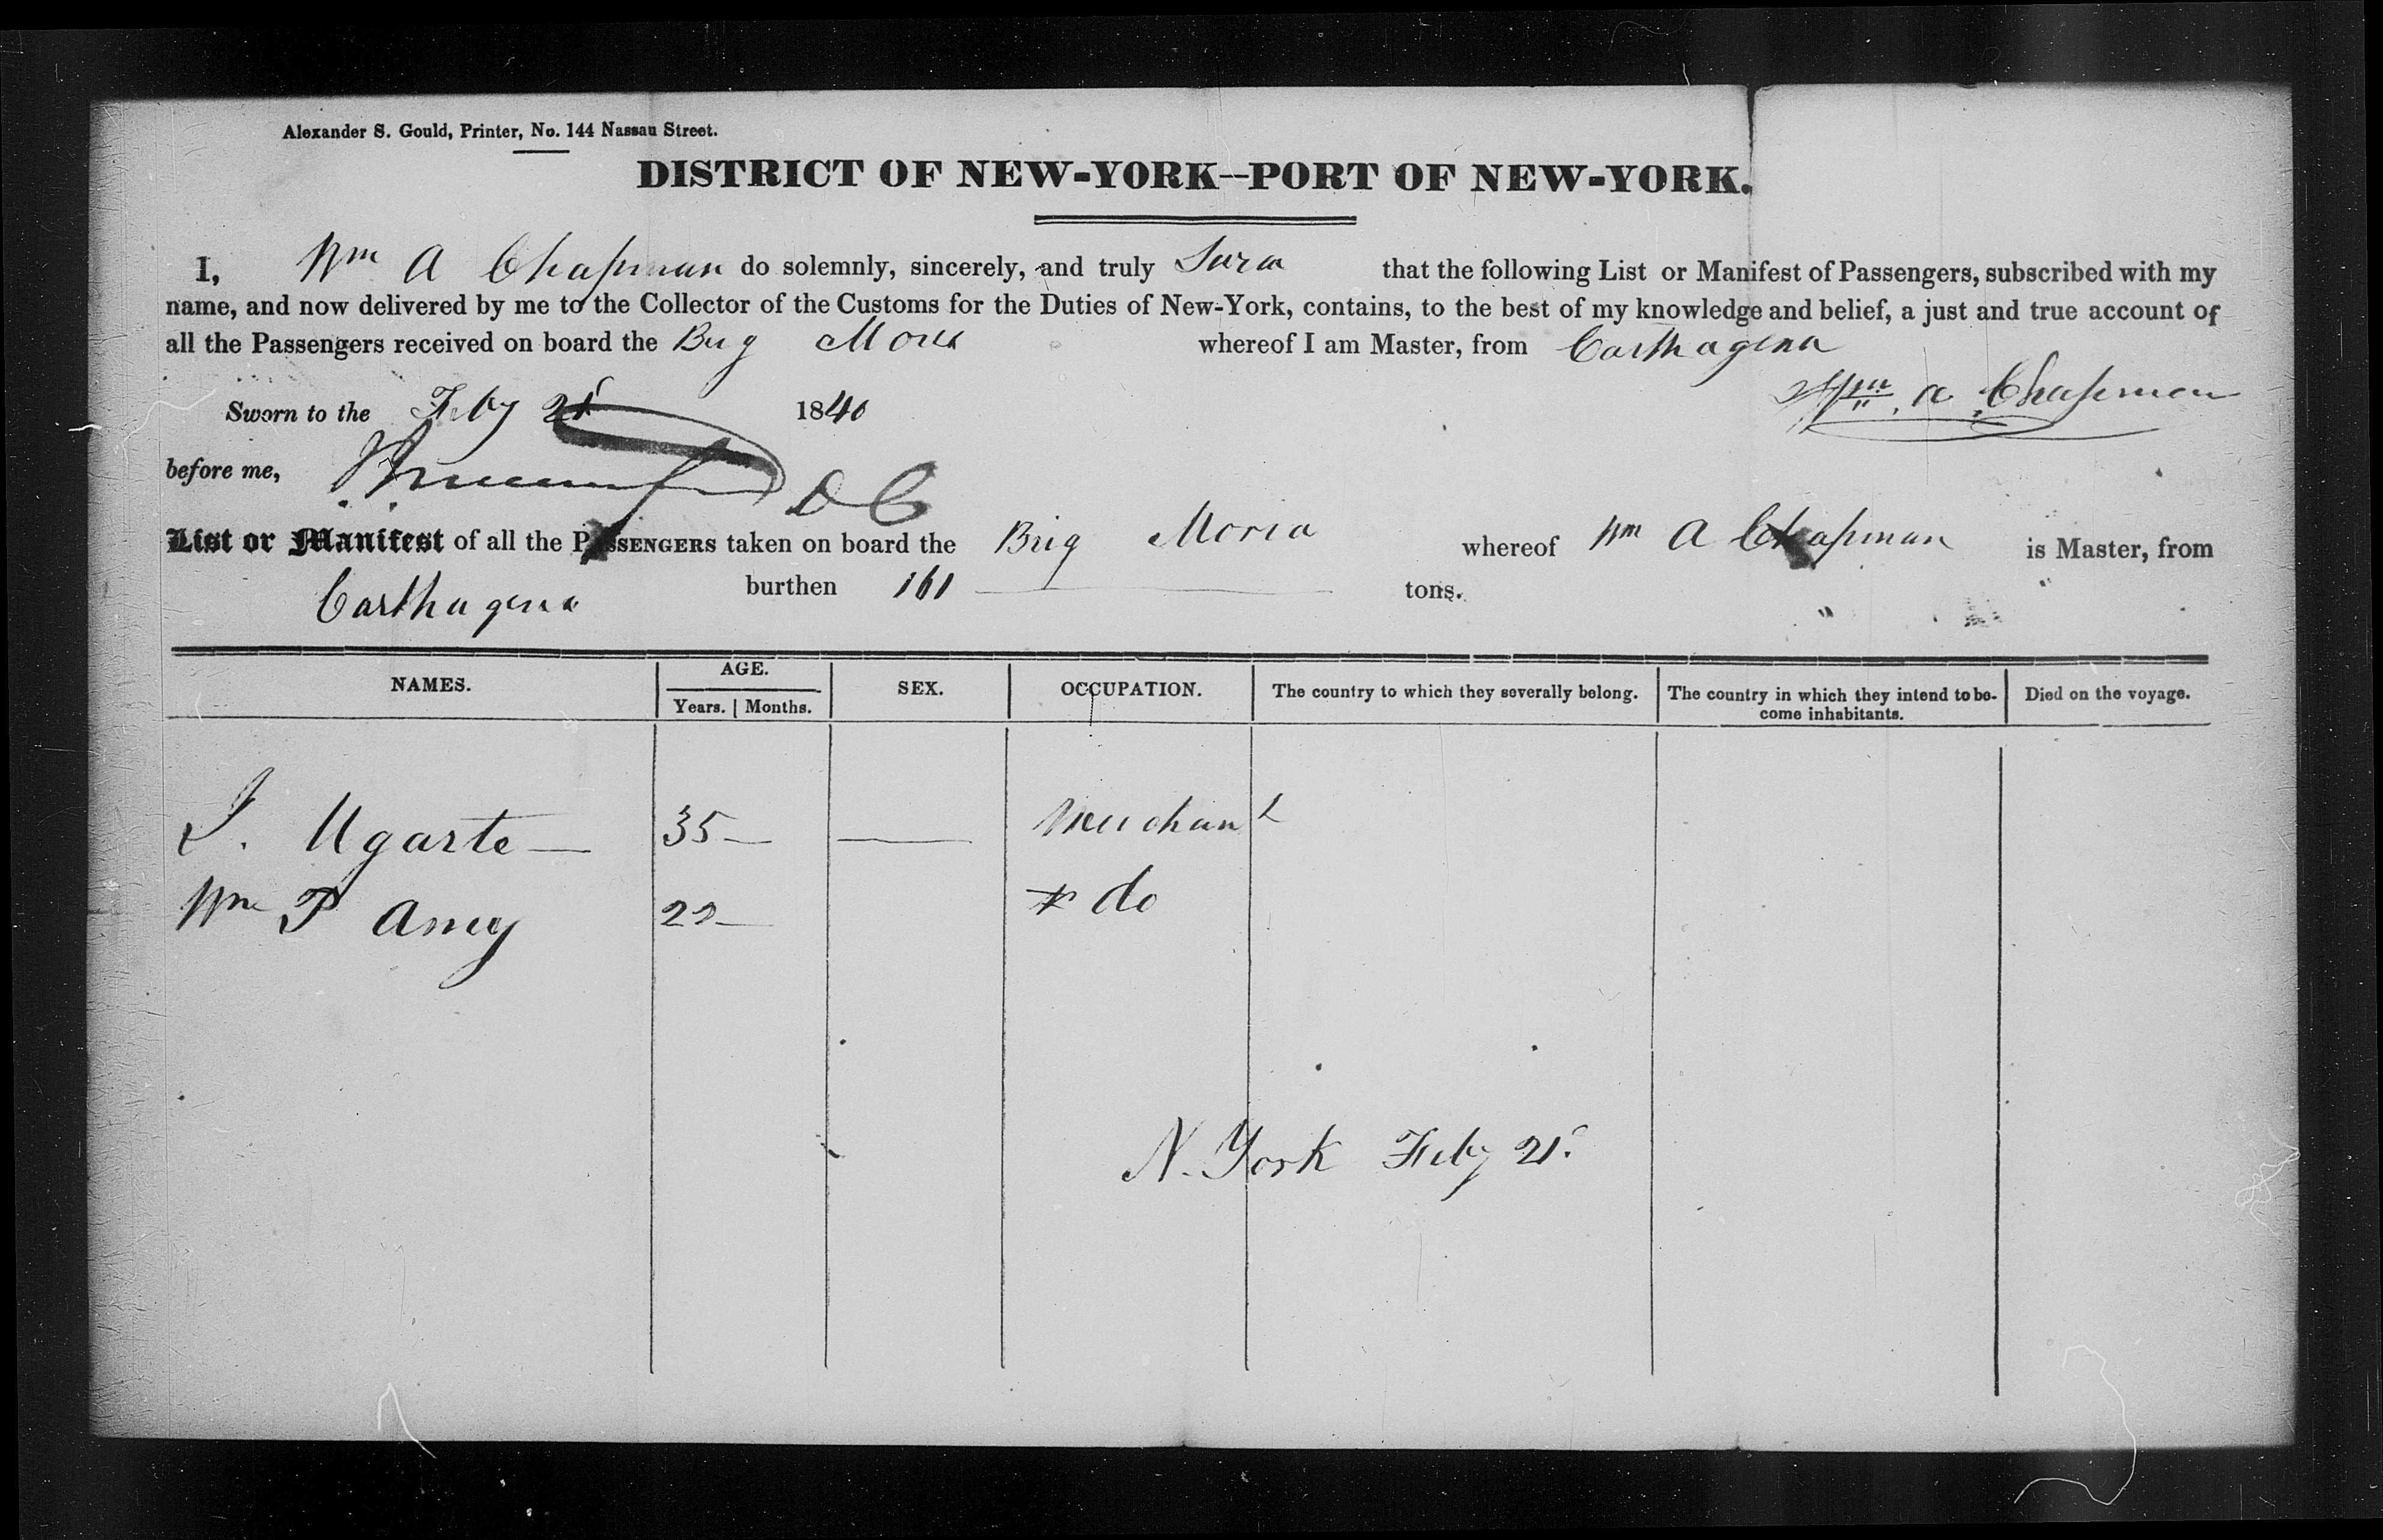 Alexander S. Gould, Printer, No. 144 Nassau Street.
DISTRICT OF NEW-YORK—PORT OF NEW-YORK.
I, Wm A Chapman do solemnly, sincerely, and truly that the following List or Manifest of Passengers, subscribed with my
name, and now delivered by me to the Collector of the Customs for the Duties of New-York, contains, to the best of my knowledge and belief, a just and true account of
all the Passengers received on board the Brig whereof I am Master, from Carthagena
Wm. A Chapman
Sworn to the Feby 21 1840
before me, D C
List or Manifest of all the PASSENGERS taken on board the Brig Moria whereof Wm A Chapman is Master, from
Carthagena burthen 161 tons.
NAMES. AGE. Years. | Months. SEX. OCCUPATION. The country to which they severally belong. The country in which they intend to become inhabitants. Died on the voyage.
J. Ugarte — 35 — — Merchant
Wm P Amey 22 — do
N. York Feby 21.